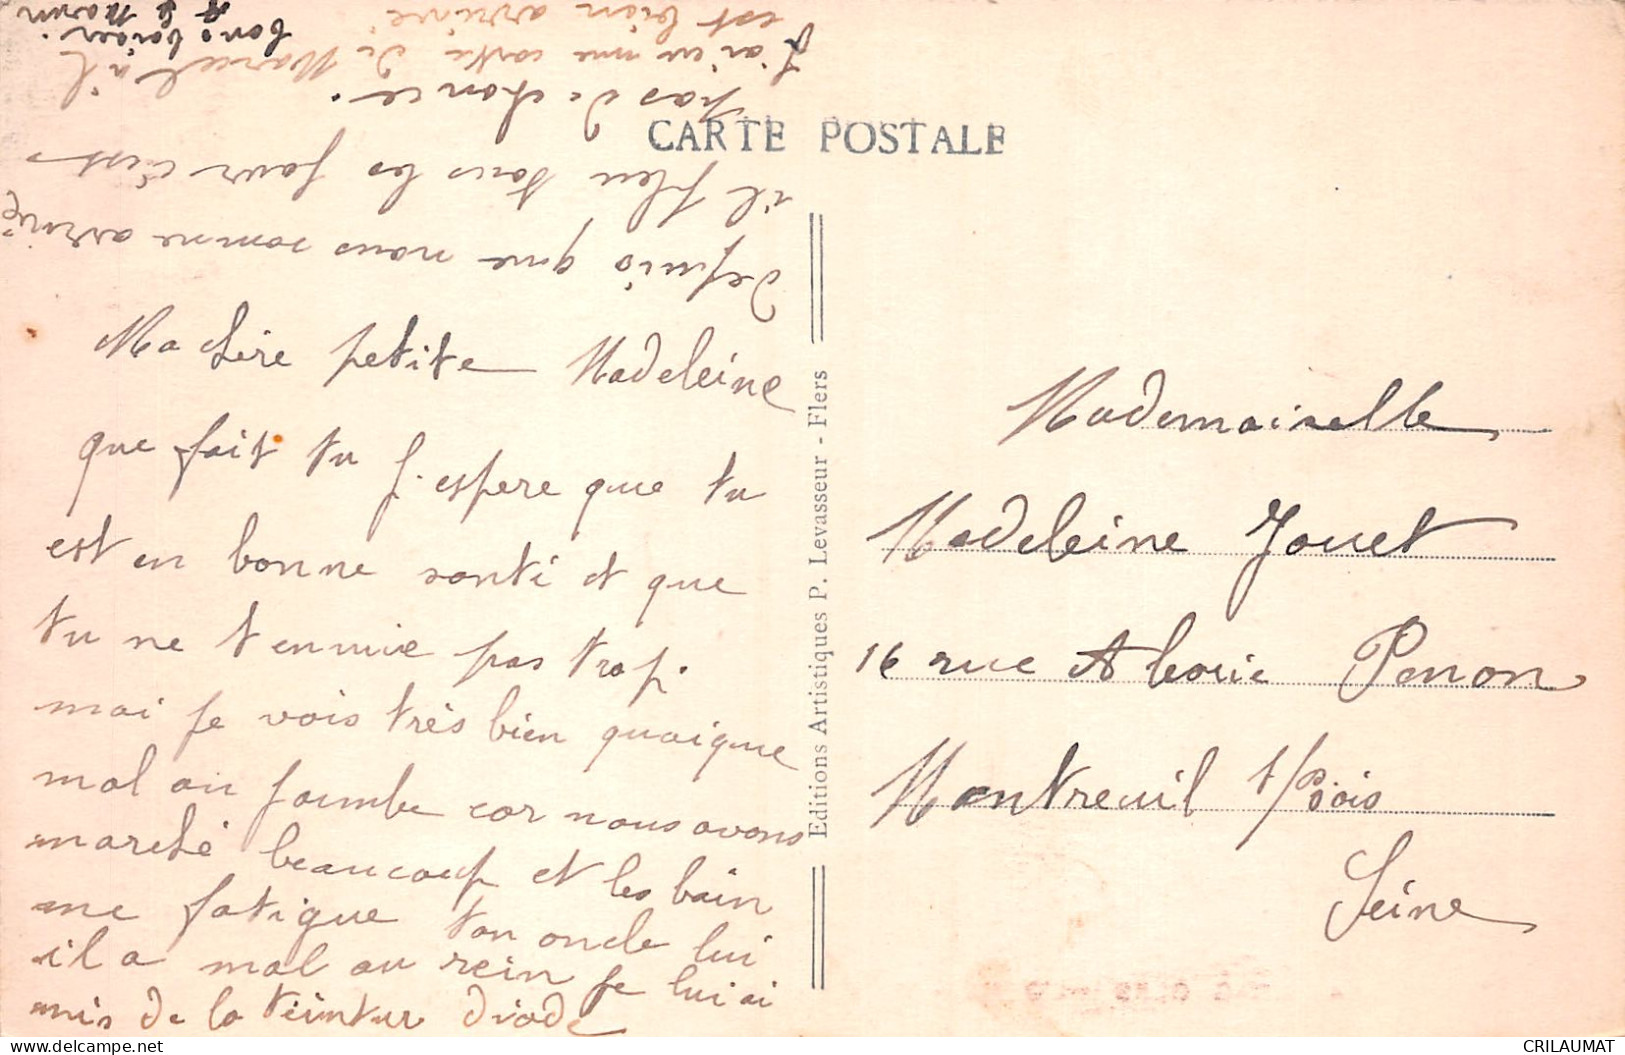 CARTE POSTALE
Ma chère petite Madeleine
que fait tu j'espere que tu
est en bonne santé et que
tu ne t ennuie pas trop.
moi je vois très bien quoique
mal au jambe car nous avons
marché beaucoup et les bain
me fatigue ton oncle lui
il a mal au rein je lui ai
mis de la teintur diode
depuis que nous somme arrivé
il pleu tous les jour c'est
pas de chance.
J'ai eu une carte de Marcel il
est bien arrivé
bons baiser.
Editions Artistiques P. Levasseur - Flers
Mademoiselle
Madeleine Jouet
16 rue Alexie Penon
Montreuil s/Bois
Seine
CRILAUMAT